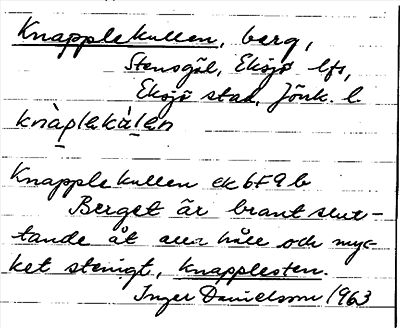 Knapplekullen, berg,
Stensgöl, Eksjö lfs,
Eksjö stad, Jönk. l.
knàplekàlen
Knapplekullen ek 6F9b
Berget är brant slut-
tande åt alla håll och myc-
ket stenigt, knapplesten.
Inger Danielsson 1963